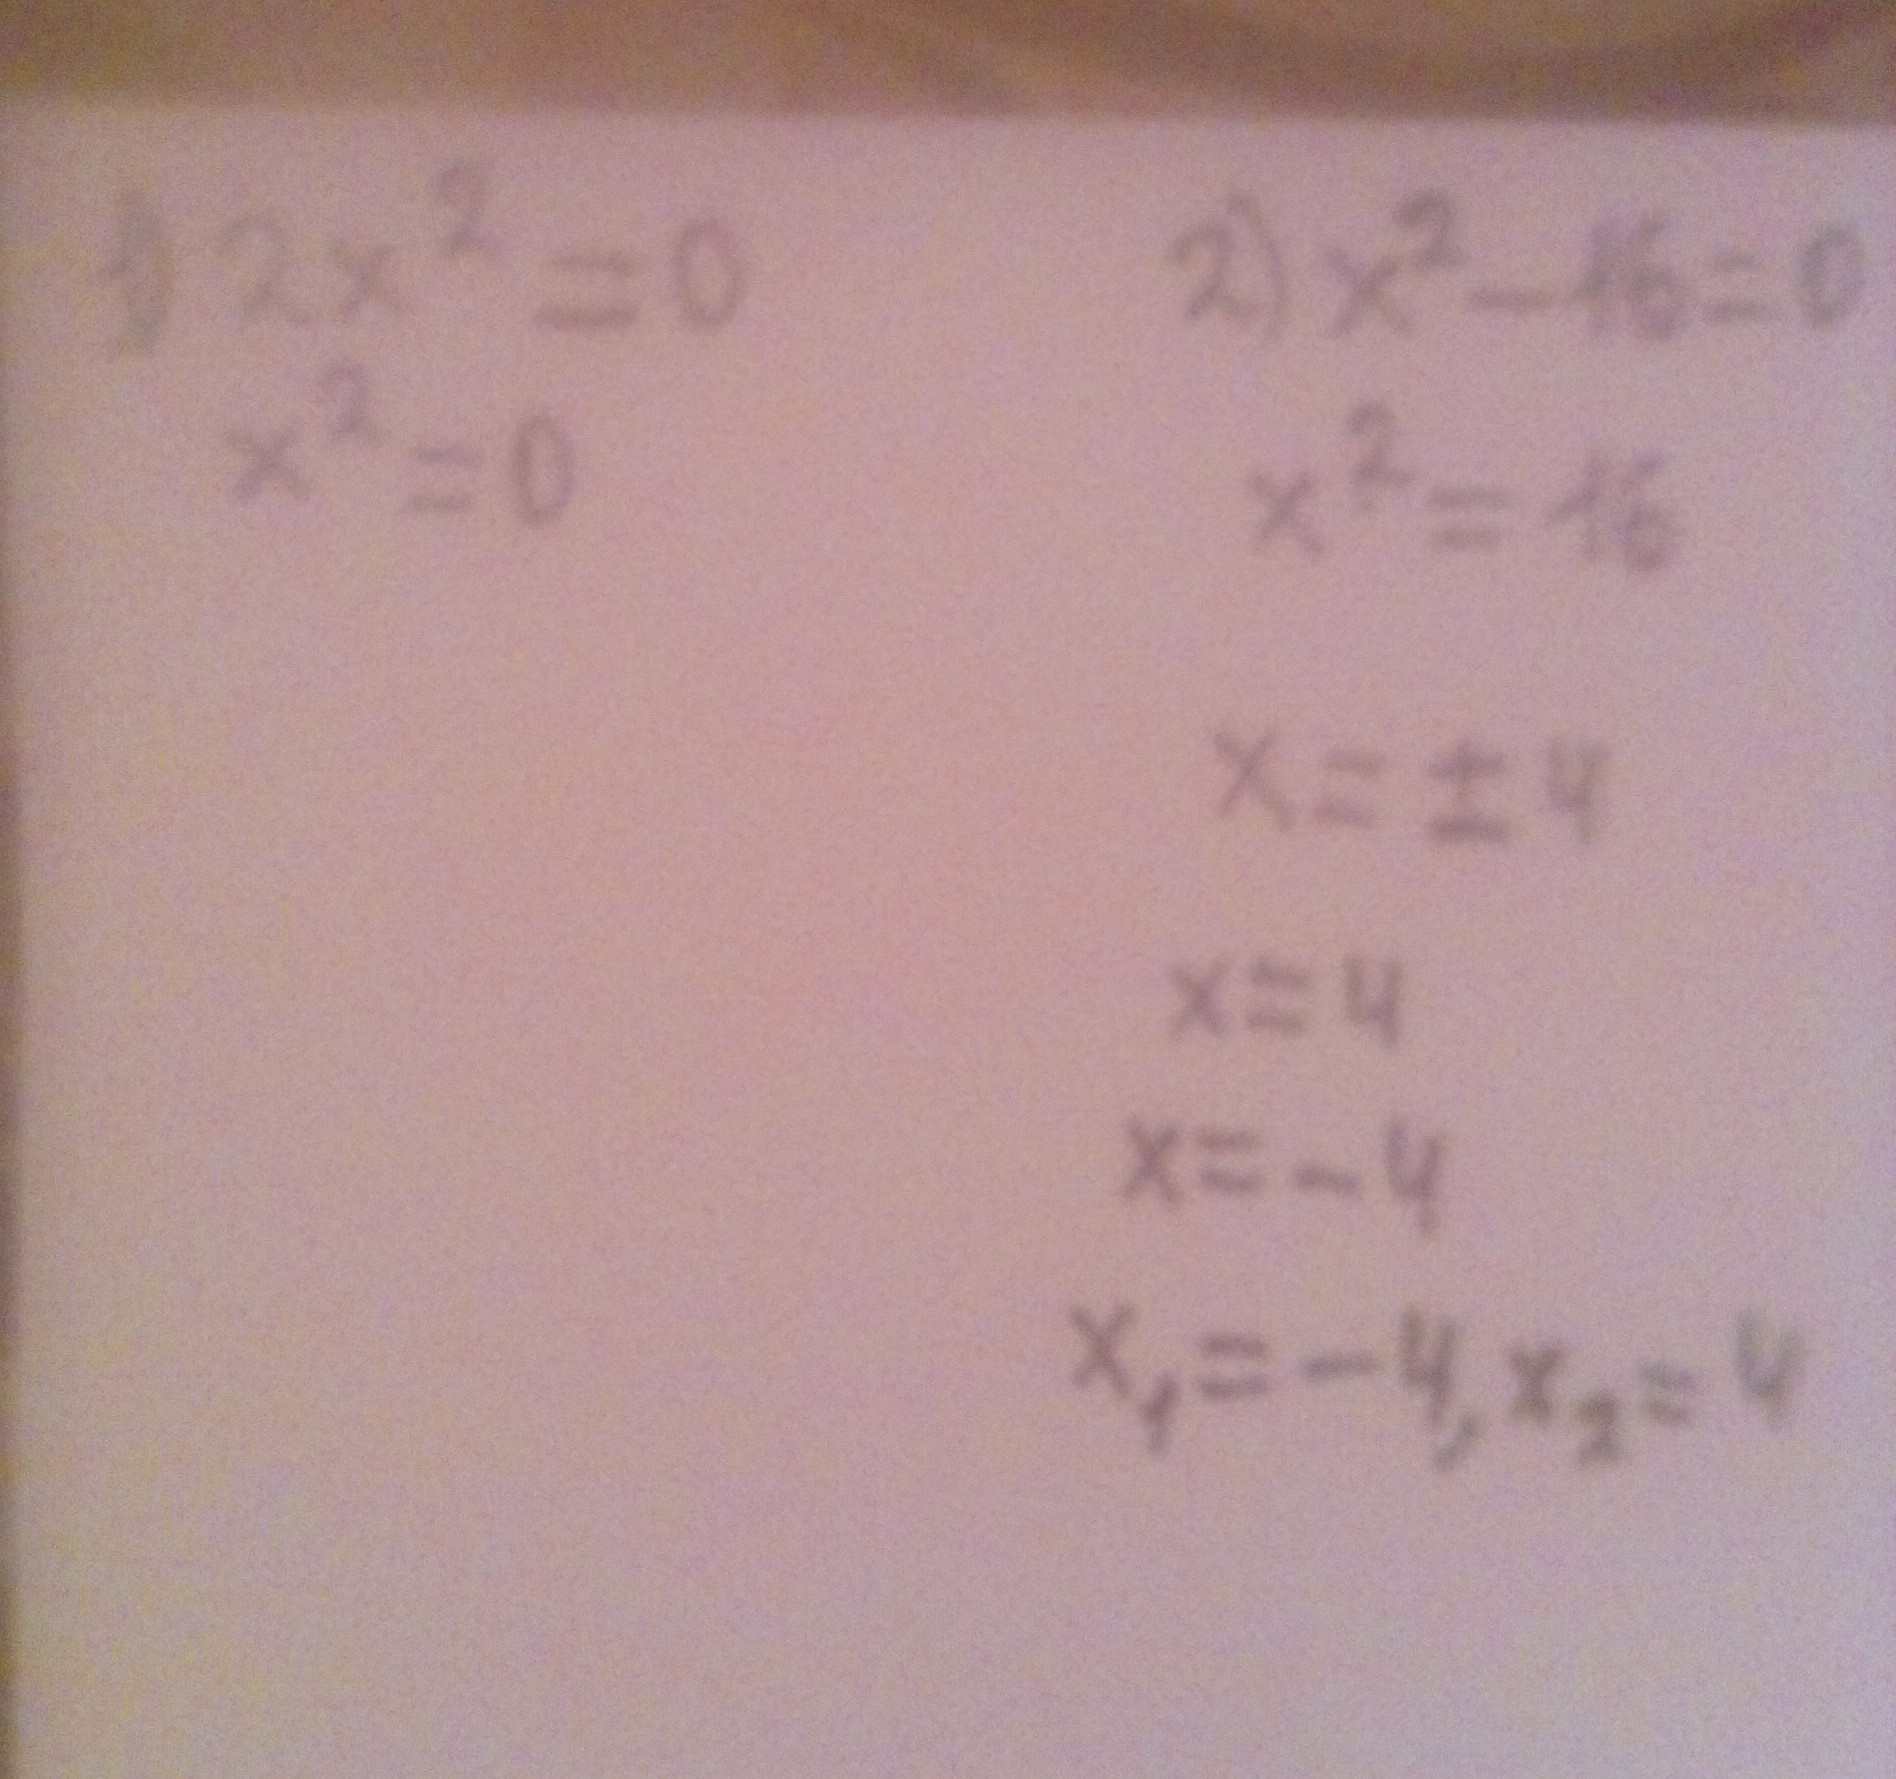 1) 2x² = 0
x² = 0
2) x² - 16 = 0
x² = 16
x = ± 4
x = 4
x = - 4
x₁ = - 4, x₂ = 4